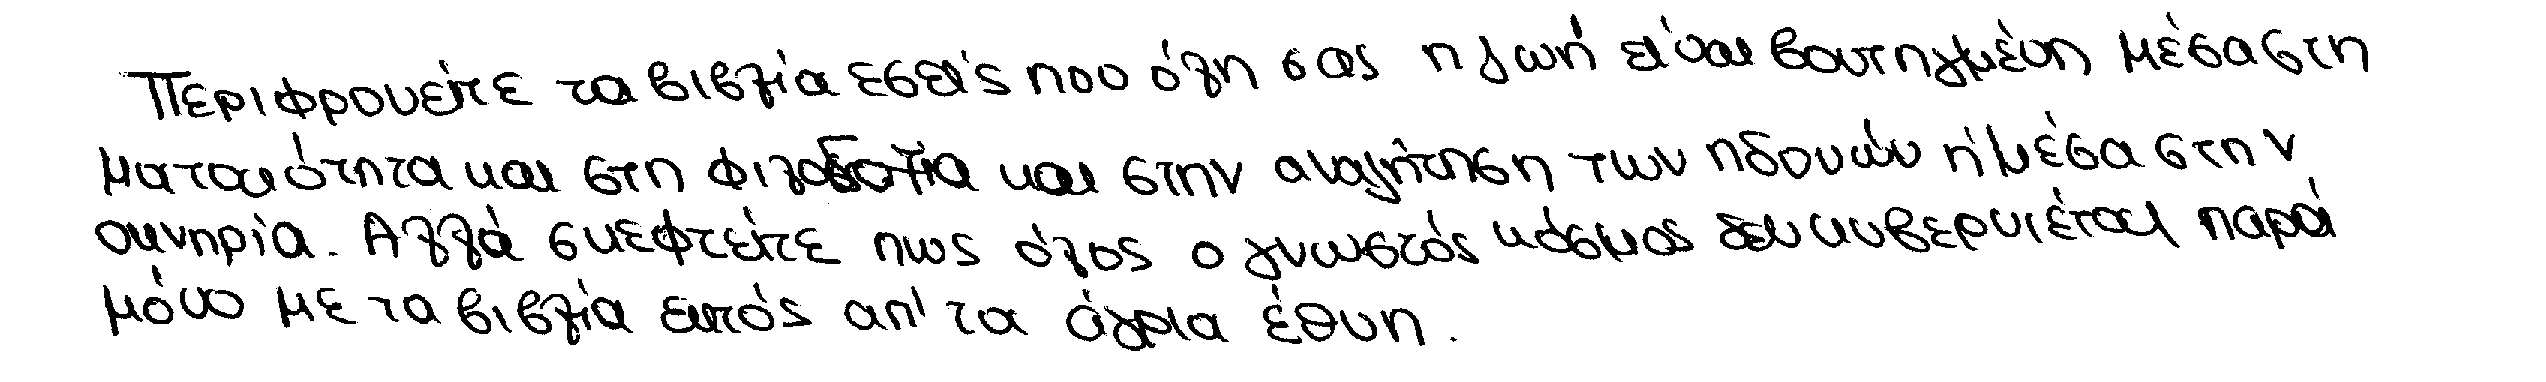 Περιφρονείτε τα βιβλία εσείς που όλη σας η ζωή είναι βουτηγμένη μέσα στη
ματαιότητα και στη φιλοδοξία και στην αναζήτηση των ηδονών ή μέσα στην
οκνηρία. Αλλά σκεφτείτε πως όλος ο γνωστός κόσμος δεν κυβερνιέται παρά
μόνο με τα βιβλία εκτός απ' τα άγρια έθνη.